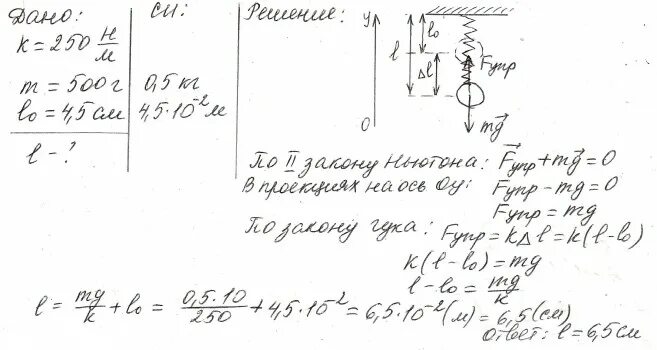 Дано:
k = 250 Н/м
m = 500 г
l₀ = 4,5 см
l - ?
СИ:
0,5 кг
4,5·10⁻² м
Решение:
y
l
l₀
Δl
Fупр
mg⃗
0
По II закону Ньютона: F⃗упр + mg⃗ = 0
В проекциях на ось Оy: Fупр - mg = 0
Fупр = mg
По закону Гука: Fупр = kΔl = k(l-l₀)
k(l-l₀) = mg
l-l₀ = mg/k
l = mg/k + l₀ = 0,5·10/250 + 4,5·10⁻² = 6,5·10⁻² (м) = 6,5 (см)
Ответ: l = 6,5 см